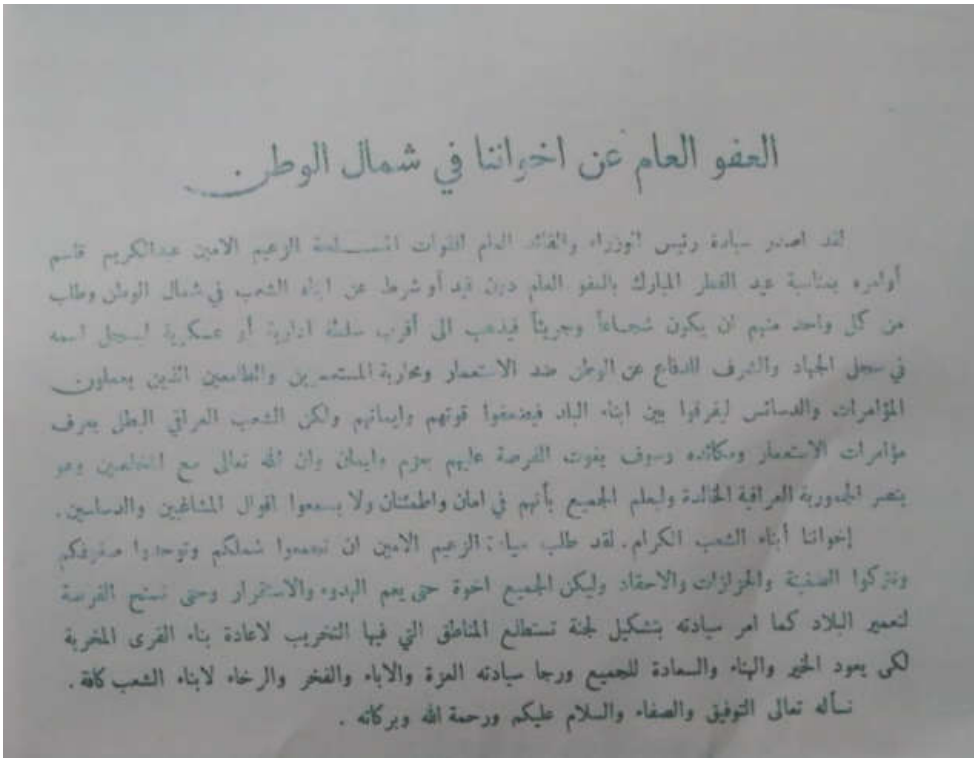 العفو العام عن اخواننا في شمال الوطن
لقد اصدر سيادة رئيس الوزراء والقائد العام للقوات المسلحة الزعيم الامين عبدالكريم قاسم
أوامره بمناسبة عيد الفطر المبارك بالعفو العام دون قيد أو شرط عن ابناء الشعب في شمال الوطن وطلب
من كل واحد منهم ان يكون شجاعاً وجريئاً فيذهب الى أقرب سلطة ادارية أو عسكرية ليسجل اسمه
في سجل الجهاد والشرف للدفاع عن الوطن ضد الاستعمار ومحاربة المستعمرين والطامعين الذين يعملون
المؤامرات والدسائس ليفرقوا بين ابناء البلد فيضعفوا قوتهم وايمانهم ولكن الشعب العراقي البطل يعرف
مؤامرات الاستعمار ومكائده وسوف يفوت الفرصة عليهم بحزم وايمان وان الله تعالى مع المخلصين وهو
ينصر الجمهورية العراقية الخالدة وليعلم الجميع بأنهم في امان واطمئنان ولا يسمعوا اقوال المشاغبين والدساسين .
إخواننا أبناء الشعب الكرام . لقد طلب سيادة الزعيم الامين ان تجمعوا شملكم وتوحدوا صفوفكم
وتتركوا الضغينة والحزازات والاحقاد وليكن الجميع اخوة حتى يعم الهدوء والاستقرار وحتى تسنح الفرصة
لتعمير البلاد كما امر سيادته بتشكيل لجنة تستطلع المناطق التي فيها التخريب لاعادة بناء القرى المخربة
لكي يعود الخير والهناء والسعادة للجميع ورجا سيادته العزة والاباء والفخر والرخاء لابناء الشعب كافة .
نسأله تعالى التوفيق والصفاء والسلام عليكم ورحمة الله وبركاته .